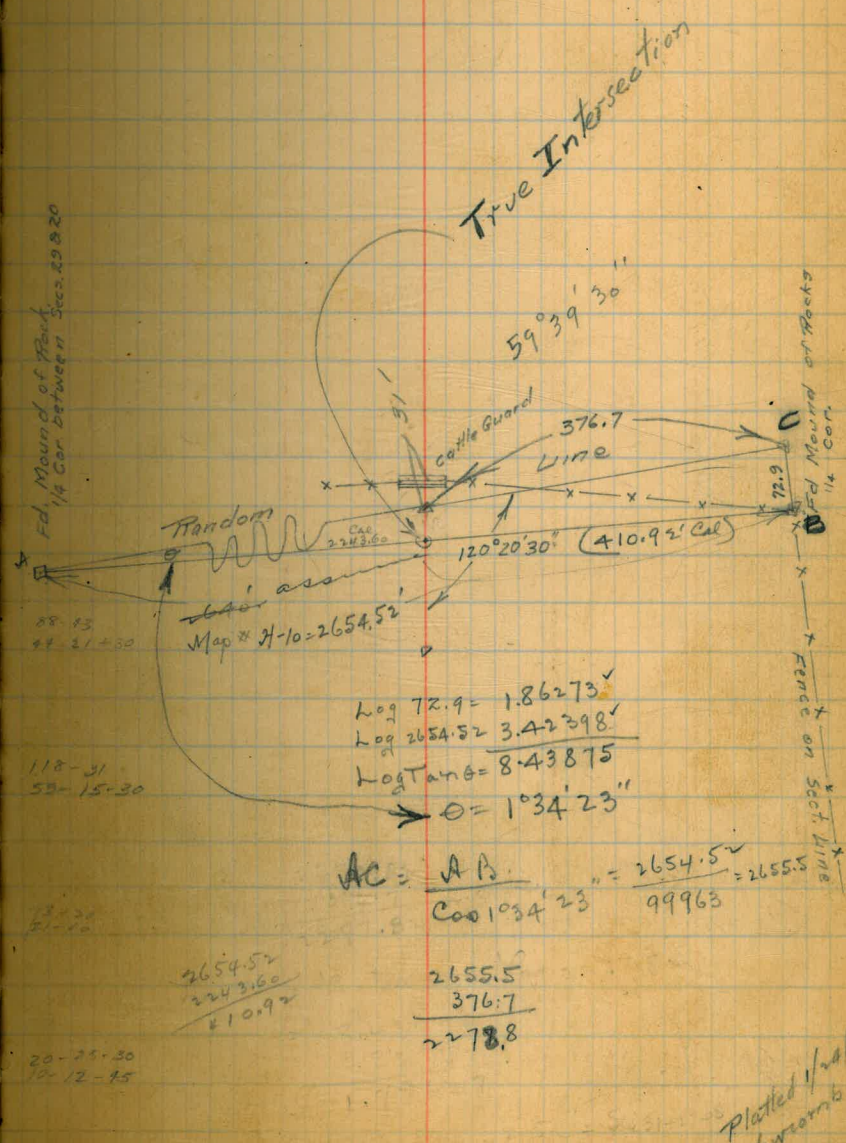 True Intersection
59°39'30"
Fd. Mound of Rock
1/4 Cor between Secs. 29 & 20
31'
Cattle Guard
376.7
Line
C
72.9
B
Fd Mound of Rocks
1/4 Cor.
Random
Cal
2243.60
120°20'30"
(410.92' Cal)
2640' assum
Map # H-10=2654.52'
Fence on Sect. Line
Log 72.9= 1.86273✓
Log 2654.52 3.42398✓
Log Tan θ= 8.43875
θ= 1°34'23"
118-31
59-15-30
AC = AB / Cos 1°34'23" = 2654.52 / 99963 = 2655.5
2654.52
2243.60
410.92
2655.5
376.7
2278.8
20-25-30
10-12-45
Platted 1/24